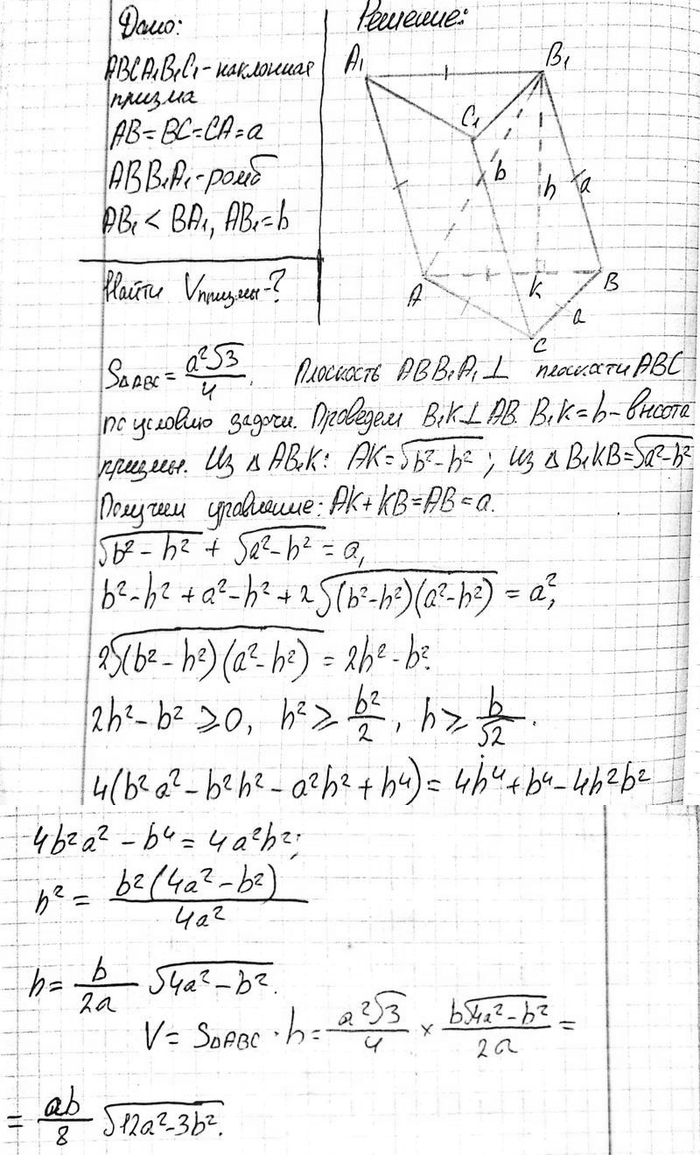 Дано:
ABCA₁B₁C₁ - наклонная
призма
AB = BC = CA = a
ABB₁A₁ - ромб
AB₁ < BA₁, AB₁ = b
Найти Vпризмы - ?
Решение:
A₁
B₁
C₁
b
h
a
A
K
B
a
C
S△ABC = a²√3/4. Плоскость ABB₁A₁ ⊥ плоскости ABC
по условию задачи. Проведем B₁K ⊥ AB. B₁K = h - высота
призмы. Из △ AB₁K: AK = √(b² - h²); из △ B₁KB = √(a² - h²)
Получим уравнение: AK + KB = AB = a.
√(b² - h²) + √(a² - h²) = a,
b² - h² + a² - h² + 2√((b² - h²)(a² - h²)) = a²;
2√((b² - h²)(a² - h²)) = 2h² - b².
2h² - b² ⩾ 0, h² ⩾ b²/2, h ⩾ b/√2.
4(b²a² - b²h² - a²h² + h⁴) = 4h⁴ + b⁴ - 4h²b²
4b²a² - b⁴ = 4a²h²;
h² = b²(4a² - b²)/4a²
h = b/2a √(4a² - b²).
V = S△ABC · h = a²√3/4 × b√(4a² - b²)/2a =
= ab/8 √(12a² - 3b²).